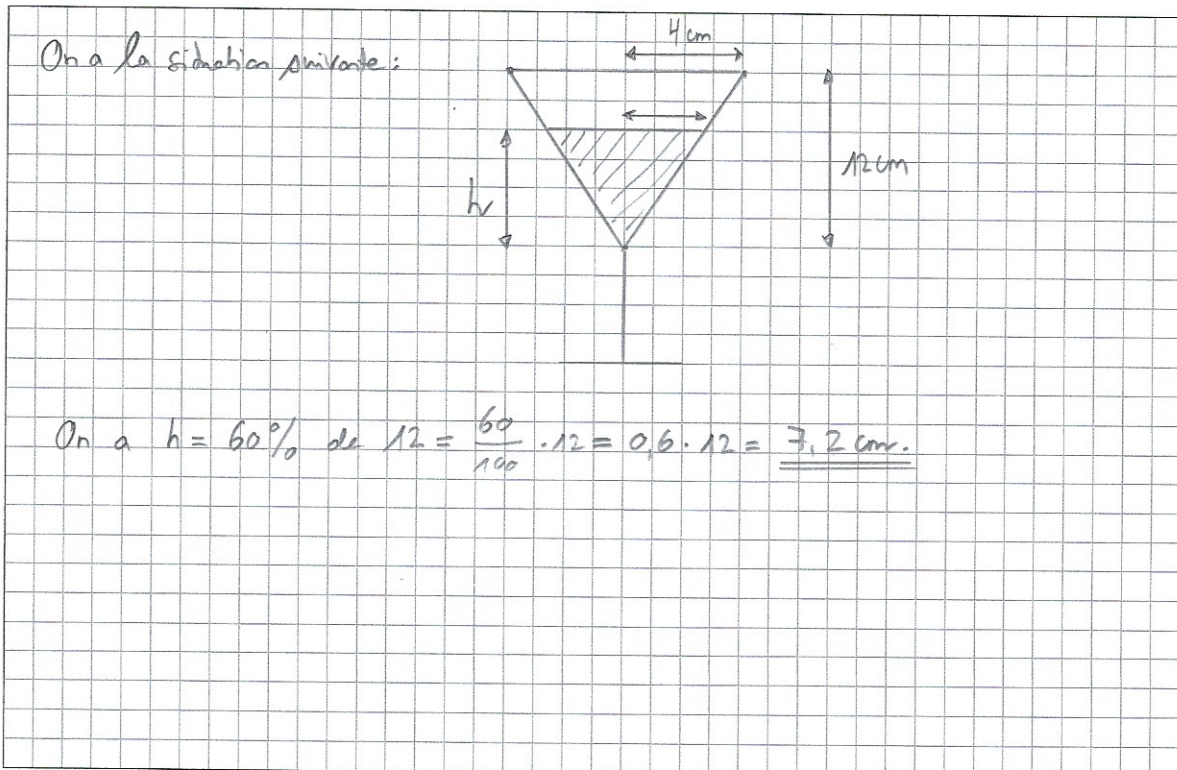 4 cm
On a la situation suivante :
12 cm
h
On a h = 60% de 12 = 60/100 · 12 = 0,6 · 12 = 7,2 cm.